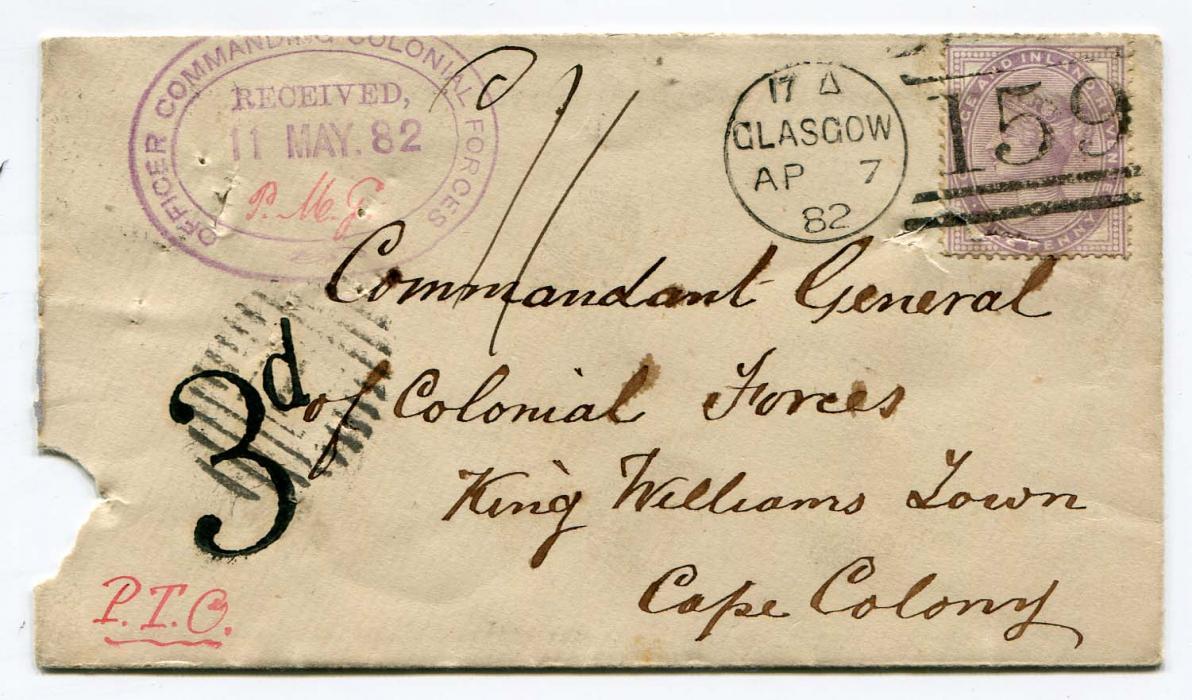 OFFICER COMMANDING COLONIAL FORCES
RECEIVED,
11 MAY. 82
P.M.G.
17 Δ
GLASGOW
AP 7
82
159
POSTAGE AND INLAND REVENUE
ONE PENNY
3d
Commandant General
of Colonial Forces
King Williams Town
Cape Colony
P.T.O.